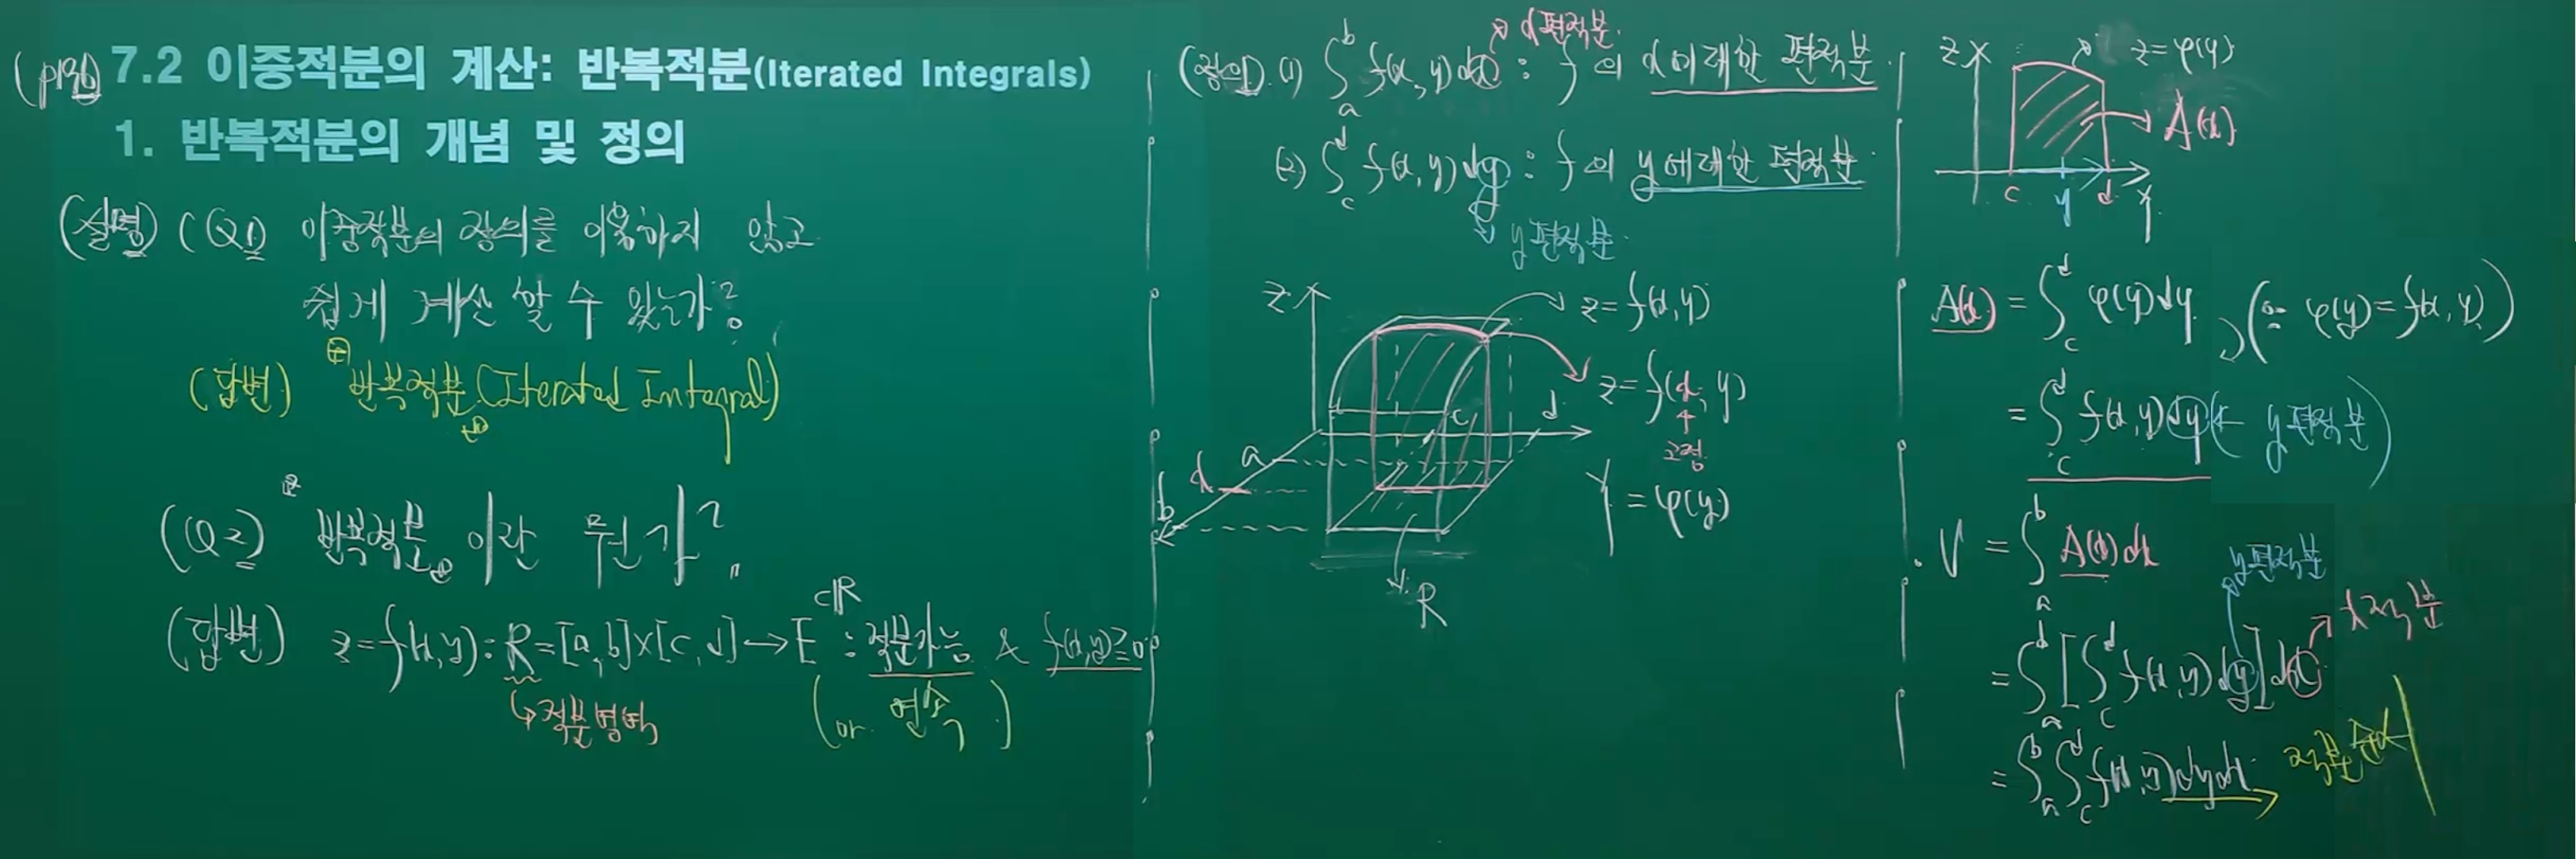 (p196) 7.2 이중적분의 계산: 반복적분(Iterated Integrals)
1. 반복적분의 개념 및 정의
(설명) (Q1) 이중적분의 정의를 이용하지 않고
쉽게 계산 할 수 있는가?
(답변) "반복적분"(Iterated Integral)
(Q2) "반복적분"이란 무엇인가?
(답변) z=f(x,y): R=[a,b]×[c,d]→E ⊂ℝ : 적분가능 & f(x,y)≥0
↳적분영역
(or 연속)
(정의) (1) ∫_a^b f(x,y)dx : f의 x에 대한 편적분
x편적분
(2) ∫_c^d f(x,y)dy : f의 y에 대한 편적분
y편적분
Z
z=f(x,y)
z=f(x,y)
고정
=φ(y)
a
x
b
c
d
Y
R
Z
z=φ(y)
A(x)
c
y
d
Y
A(x) = ∫_c^d φ(y)dy (∵ φ(y)=f(x,y))
= ∫_c^d f(x,y)dy (← y편적분)
V = ∫_a^b A(x)dx
y편적분
x적분
= ∫_a^d [∫_c^d f(x,y)dy]dx
= ∫_a^b ∫_c^d f(x,y)dydx 적분순서